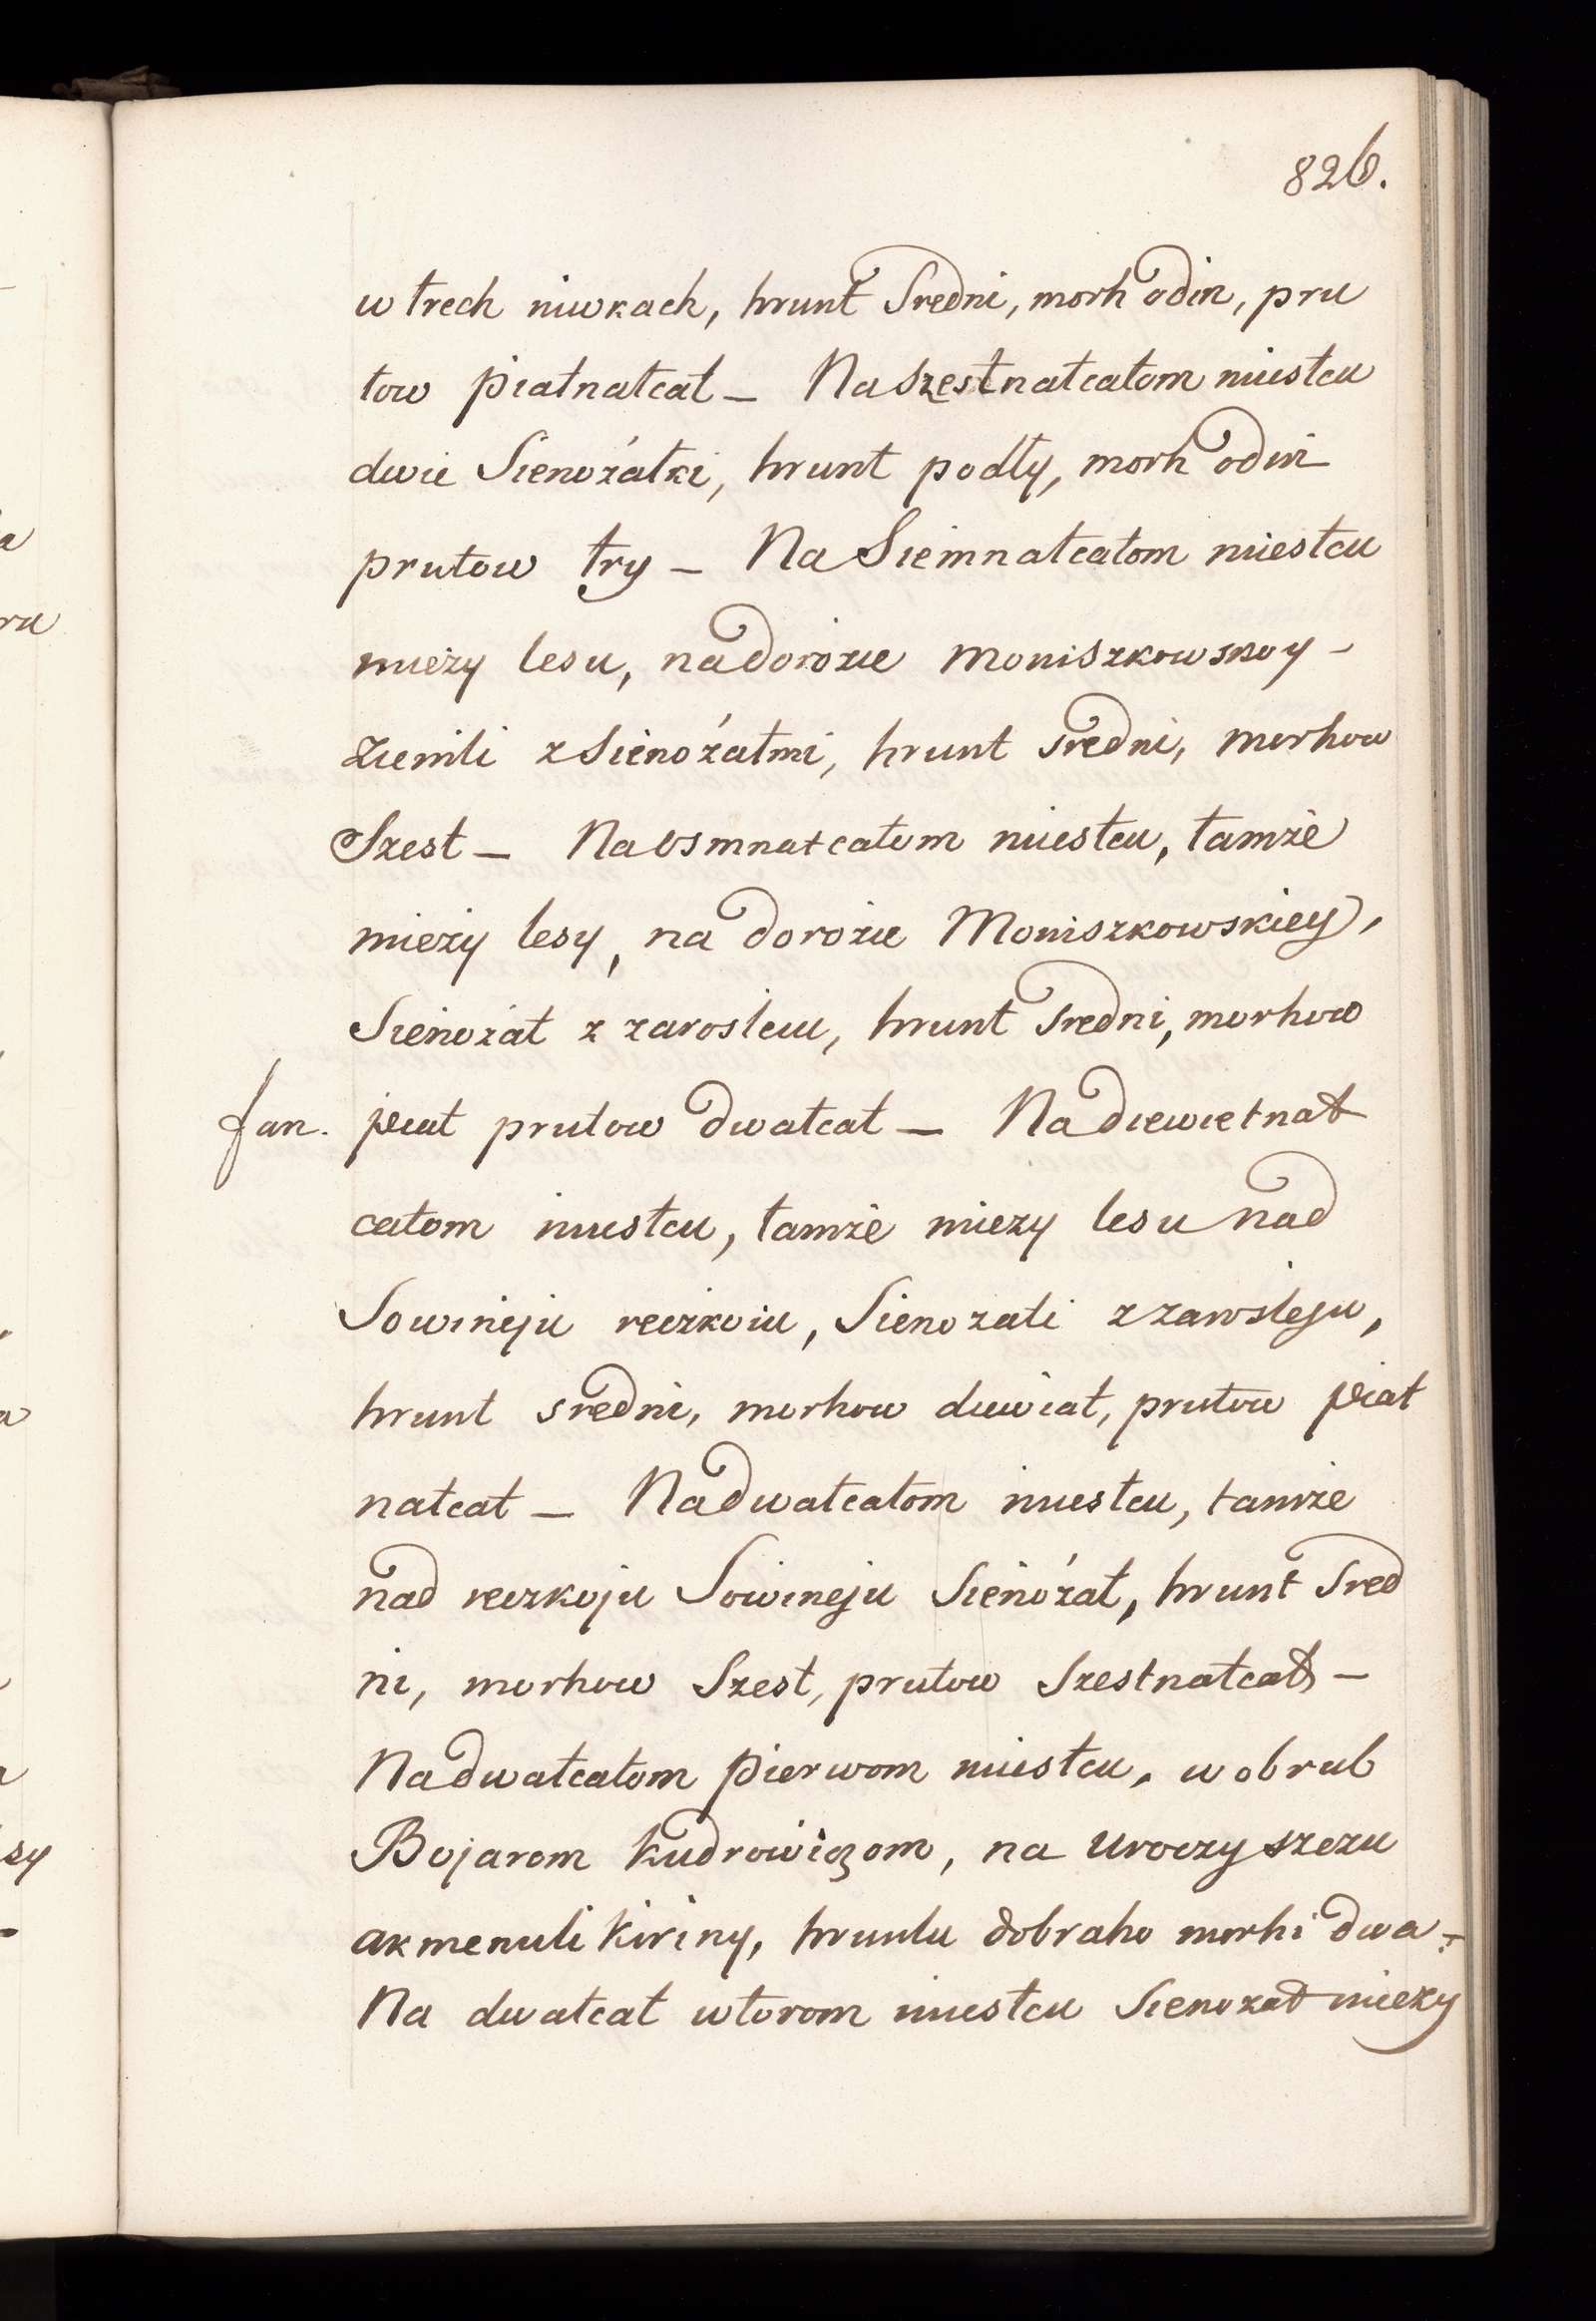 826.
w trech niwkach, hrunt Sredni, morh odin, pru
tow piatnatcat — Na Szestnatcatom miestcu
dwie Sienożatki, hrunt podły, morh odin
prutow try — Na Siemnatcatom miestcu
mieży lesu, na dorozie Moniszkowskoy —
Ziemli z Sienożatmi, hrunt sredni, morhow
Szest — Na osmnatcatom miestcu, tamże
mieży lesy, na dorozie Moniszkowskiey,
Sienożat z zarosleiu, hrunt Sredni, morhow
fan. piat prutow dwatcat — Na dziewietnat
catom miestcu, tamże miezy lesu nad
Sowineju reczkoiu, Sienozati z zarosleju,
hrunt sredni, morhow dewiat, prutow piat
natcat — Na dwatcatom miestcu, tamże
nad reczkoju Sowineju Sienożat, hrunt Sred
ni, morhow Szest, prutow Szestnatcat —
Na dwatcatom pierwom miestcu, w obrub
Bojarom Kudrowiczom, na Uroczyszczu
akmenuli Kiriny, hruntu dobraho morhi dwa —
Na dwatcat wtorom miestcu Sienozat miezy